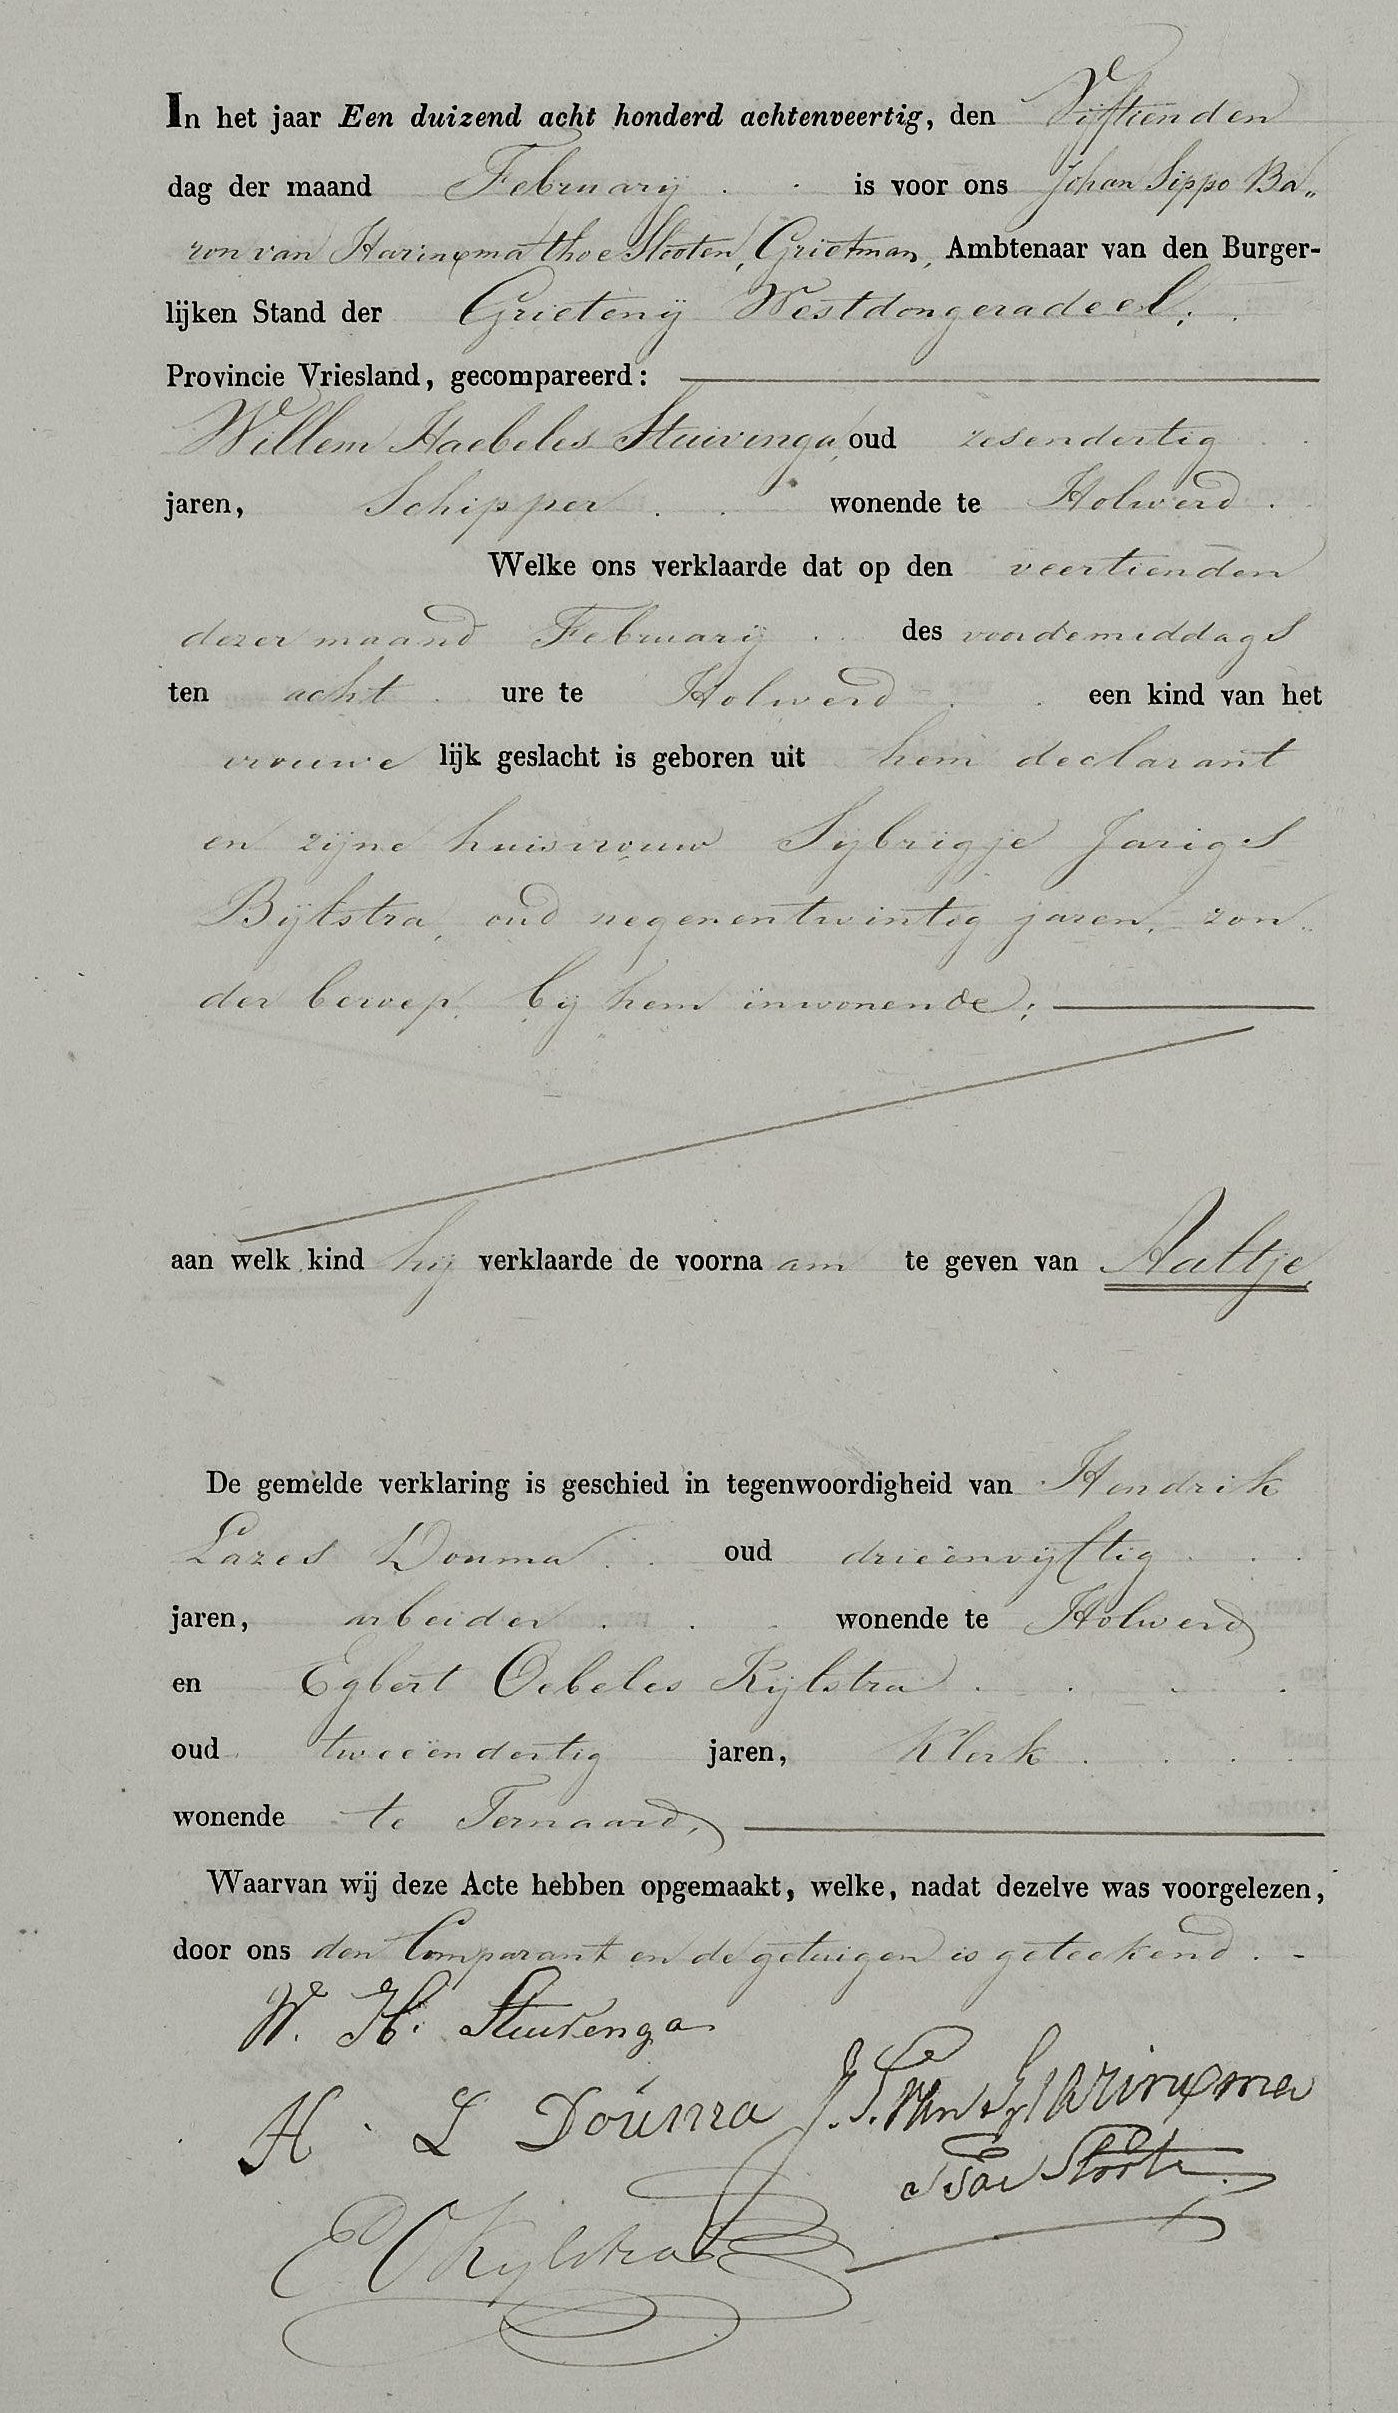 In het jaar Een duizend acht honderd achtenveertig, den Vijftienden
dag der maand Februarij is voor ons Johan Sippo Ba„
ron van Harinxma thoe Slooten, Grietman, Ambtenaar van den Burger-
lijken Stand der Grietenij Westdongeradeel;
Provincie Vriesland, gecompareerd:
Willem Haebeles Stuivenga, oud zesendertig
jaren, Schipper wonende te Holwerd
Welke ons verklaarde dat op den veertienden
dezer maand Februarij des voordemiddags
ten acht ure te Holwerd een kind van het
vrouwe lijk geslacht is geboren uit hem declarant
en zijne huisvrouw Sijbrigje Jarigs
Bijlstra, oud negenentwintig jaren, zon„
der beroep, bij hem inwonende;
aan welk kind hij verklaarde de voorna am te geven van Aaltje,
De gemelde verklaring is geschied in tegenwoordigheid van Hendrik
Lazes Douma oud drieënvijftig
jaren, arbeider wonende te Holwerd
en Egbert Oebeles Kijlstra
oud tweeëndertig jaren, Klerk
wonende te Ternaard,
Waarvan wij deze Acte hebben opgemaakt, welke, nadat dezelve was voorgelezen,
door ons den Comparant en de getuigen is geteekend.
W. H. Stuivenga
H. L Douma J. S. van Harinxma
thoe Slooten
E O Kijlstra